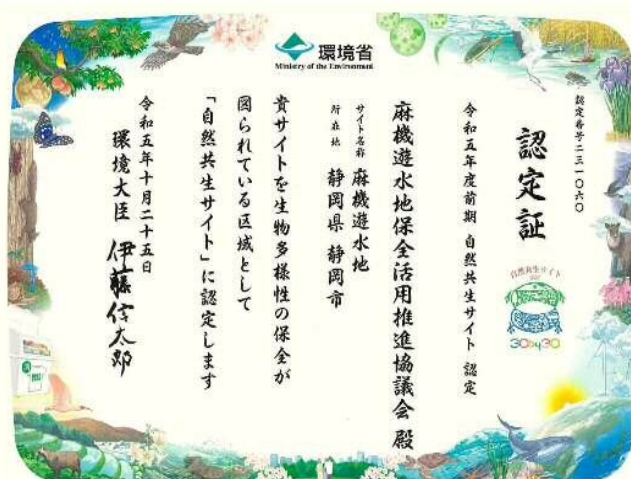 環境省
Ministry of the Environment
認定番号二三一〇六〇
認定証
自然共生サイト
30by30
令和五年度前期 自然共生サイト 認定
麻機遊水地保全活用推進協議会 殿
サイト名称 麻機遊水地
所在地 静岡県 静岡市
貴サイトを生物多様性の保全が
図られている区域として
「自然共生サイト」に認定します
令和五年十月二十五日
環境大臣 伊藤信太郎